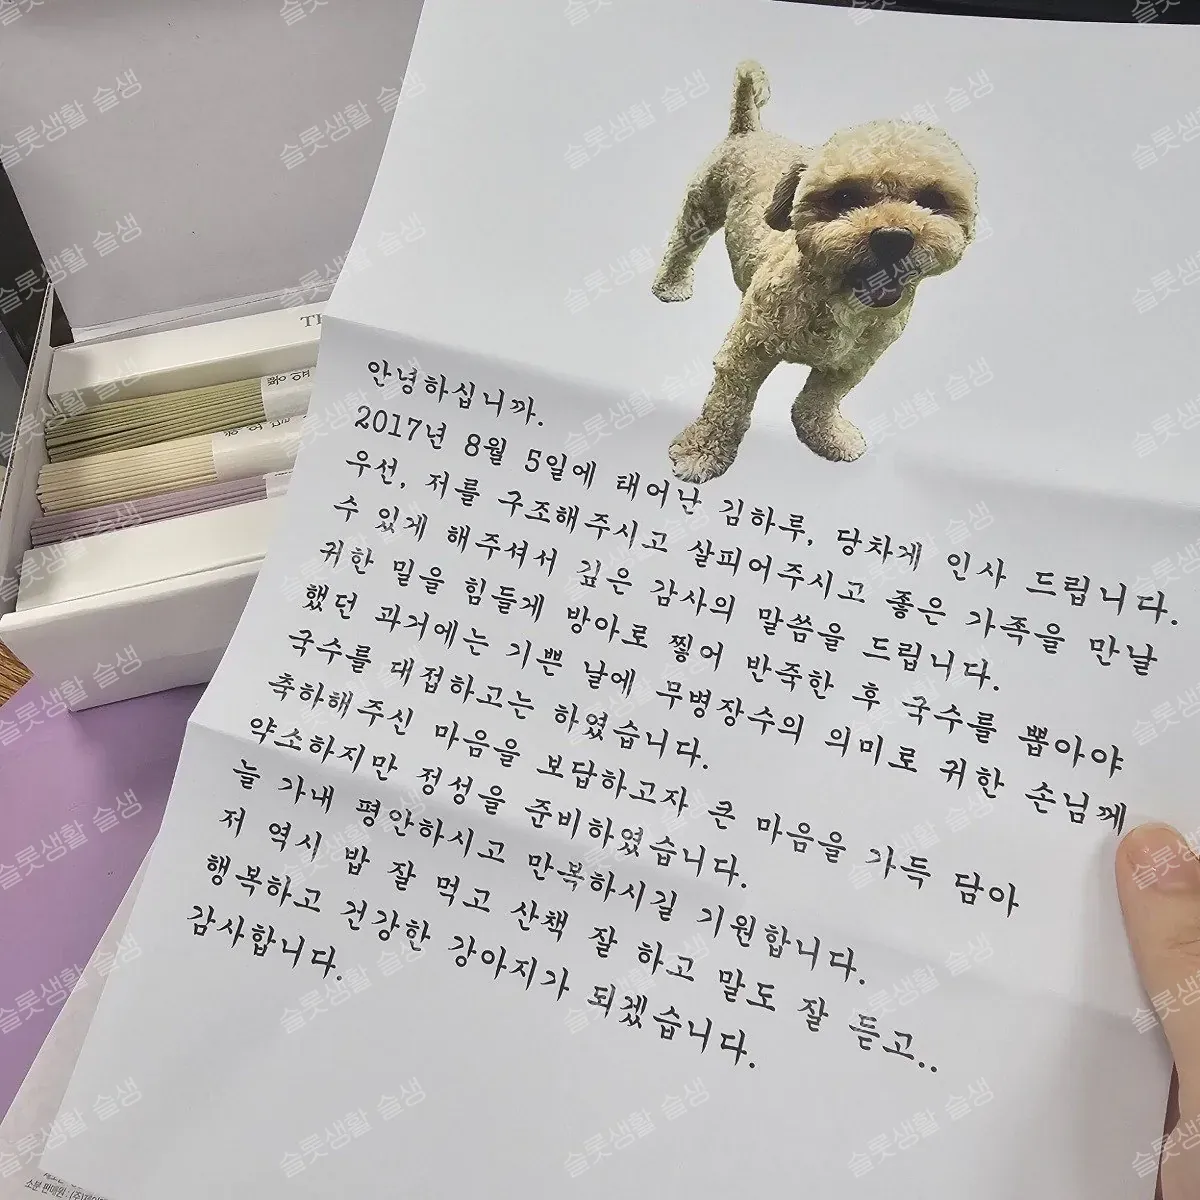 안녕하십니까.
2017년 8월 5일에 태어난 김하루, 당차게 인사 드립니다.
우선, 저를 구조해주시고 살피어주시고 좋은 가족을 만날
수 있게 해주셔서 깊은 감사의 말씀을 드립니다.
귀한 밀을 힘들게 방아로 찧어 반죽한 후 국수를 뽑아야
했던 과거에는 기쁜 날에 무병장수의 의미로 귀한 손님께
국수를 대접하고는 하였습니다.
축하해주신 마음을 보답하고자 큰 마음을 가득 담아
약소하지만 정성을 준비하였습니다.
늘 가내 평안하시고 만복하시길 기원합니다.
저 역시 밥 잘 먹고 산책 잘 하고 말도 잘 듣고..
행복하고 건강한 강아지가 되겠습니다.
감사합니다.
소분 판매원 :
슬롯생활 슬생